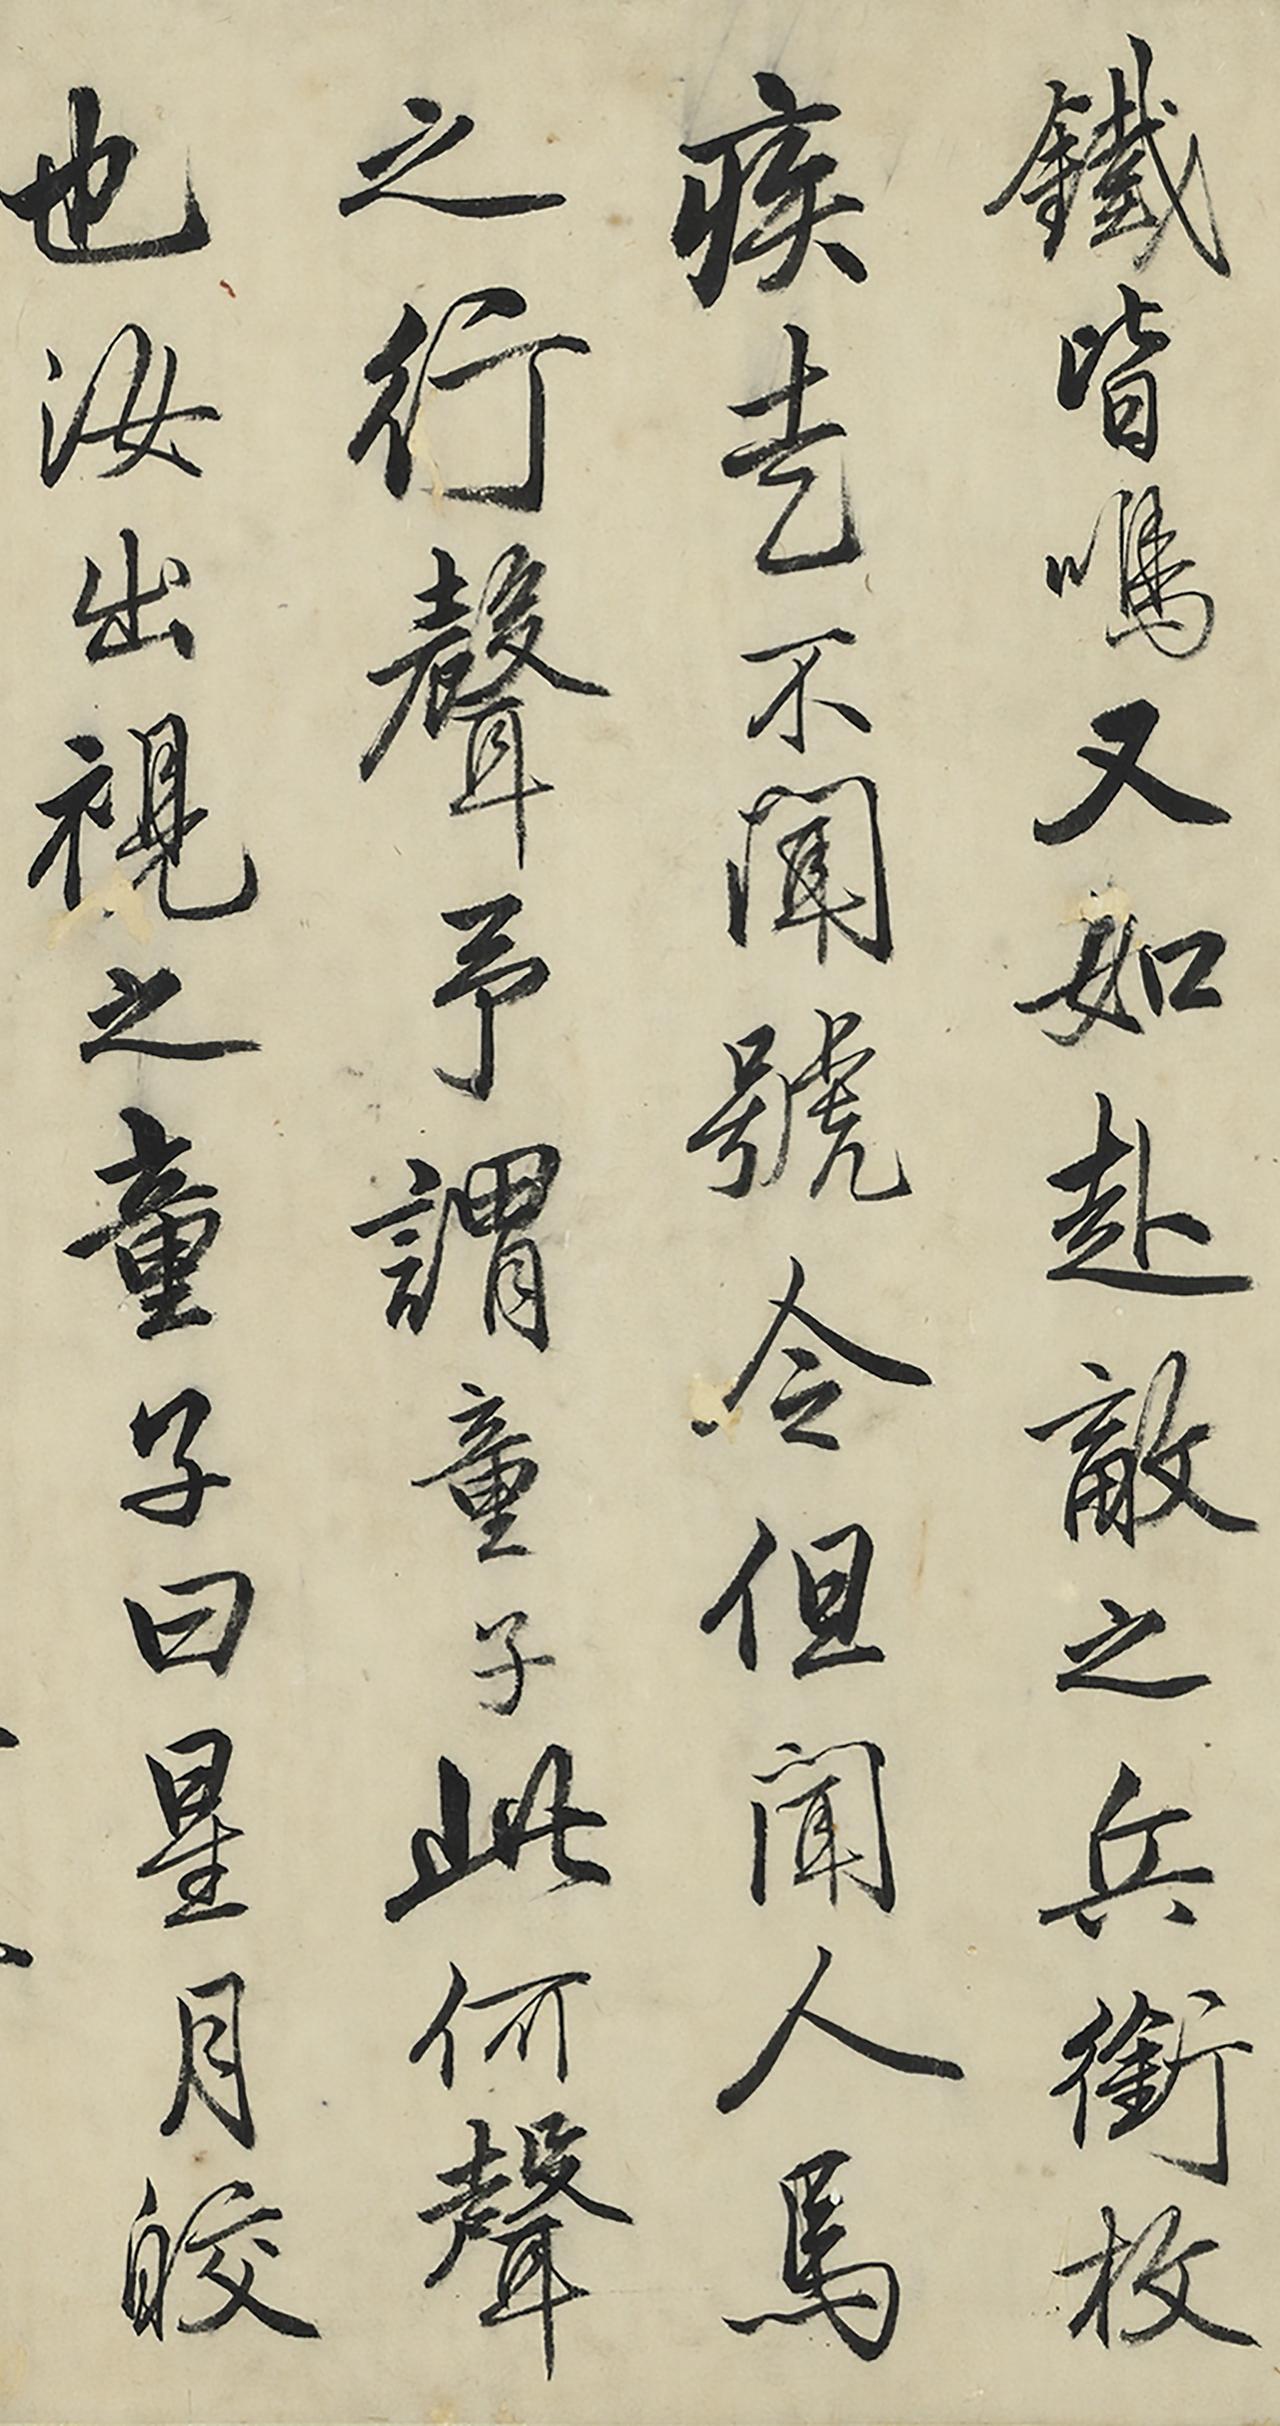 鐵皆鳴又如赴敵之兵銜枚
疾走不聞號令但聞人馬
之行聲予謂童子此何聲
也汝出視之童子曰星月皎